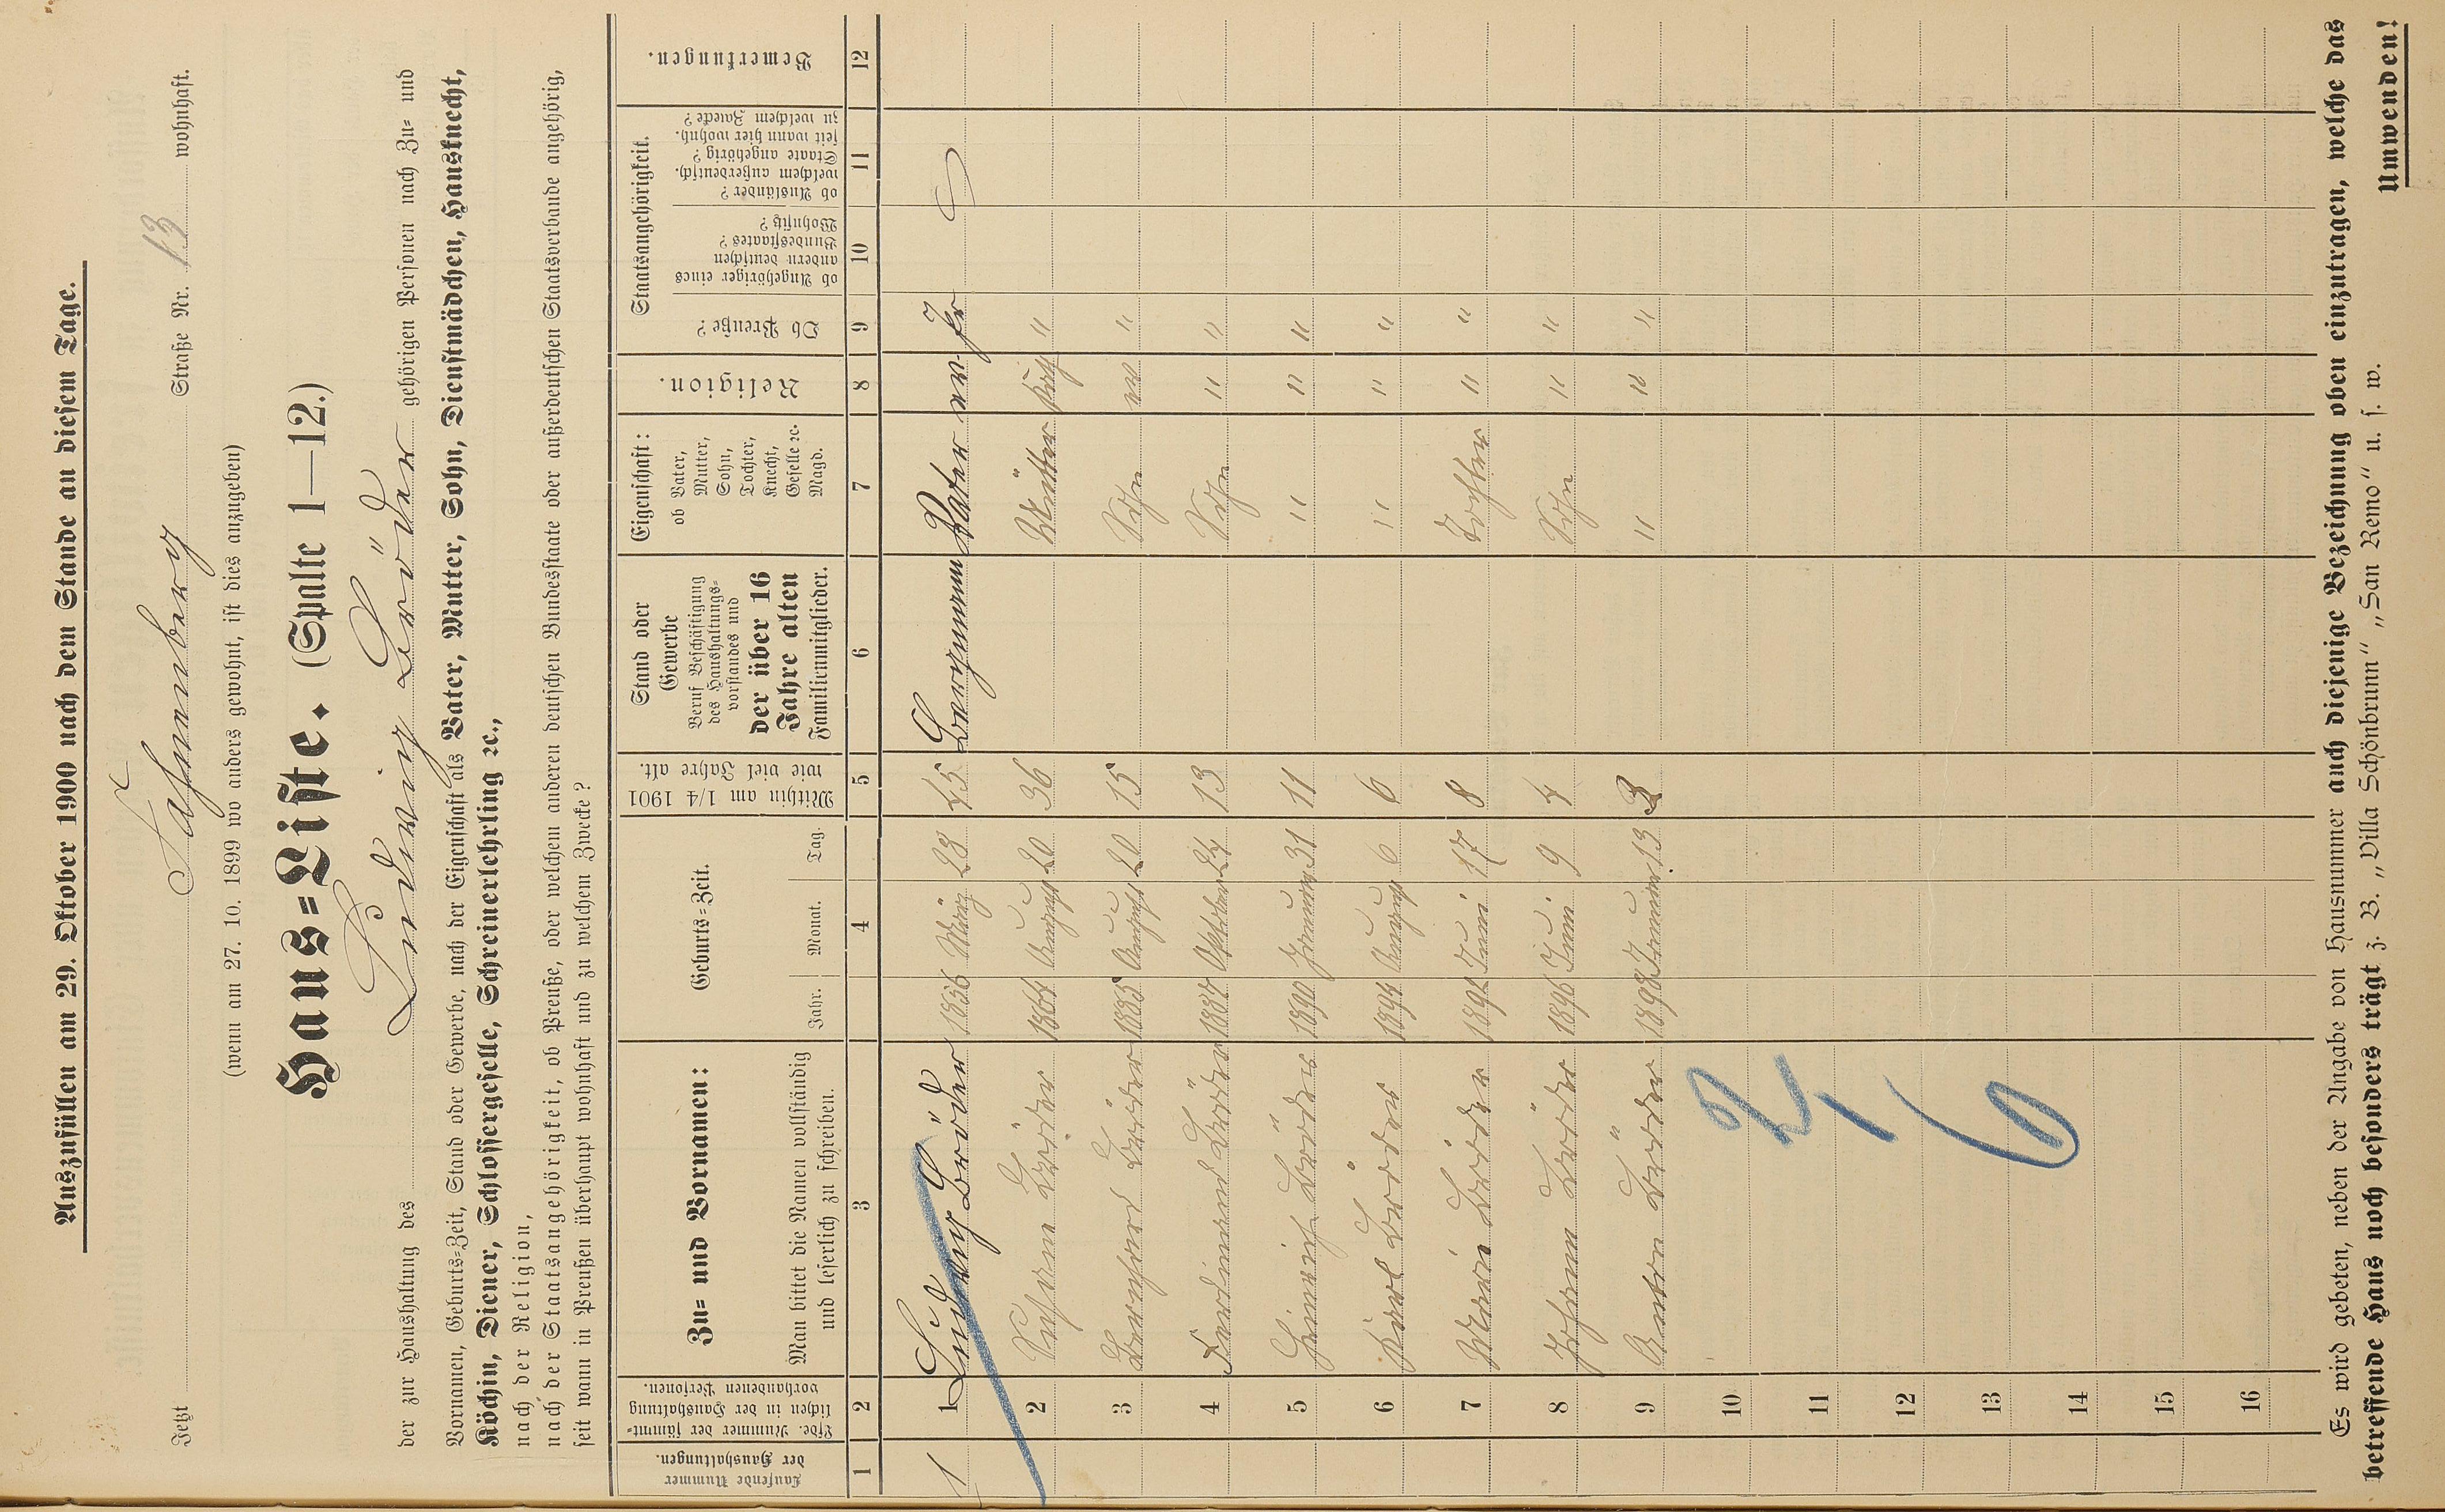 Auszufüllen am 29. Oktober 1900 nach dem Stande an diesem Tage.
Jetzt Straße Nr. 13 wohnhaft.
(wenn am 27. 10. 1899 wo anders gewohnt, ist dies anzugeben)
Haus=Liste. (Spalte 1—12.)
der zur Haushaltung des Ludwig Bröder gehörigen Personen nach Zu= und
Vornamen, Geburts=Zeit, Stand oder Gewerbe, nach der Eigenschaft als Vater, Mutter, Sohn, Dienstmädchen, Hausknecht,
Köchin, Diener, Schlossergeselle, Schreinerlehrling ꝛc.,
nach der Religion,
nach der Staatsangehörigkeit, ob Preuße, oder welchem anderen deutschen Bundesstaate oder außerdeutschen Staatsverbande angehörig,
seit wann in Preußen überhaupt wohnhaft und zu welchem Zwecke?
Laufende Nummer der Haushaltungen.
Lfde. Nummer der sämmt=lichen in der Haushaltung vorhandenen Personen.
Zu= und Vornamen:
Man bittet die Namen vollständig
und leserlich zu schreiben.
Geburts=Zeit.
Jahr. Monat. Tag.
Mithin am 1/4 1901
wie viel Jahre alt.
Stand oder
Gewerbe
Beruf Beschäftigung
des Haushaltungs=
vorstandes und
der über 16
Jahre alten
Familienmitglieder.
Eigenschaft:
ob Vater,
Mutter,
Sohn,
Tochter,
Knecht,
Geselle ꝛc.
Magd.
Religion.
Staatsangehörigkeit.
Ob Preuße?
ob Angehöriger eines
andern deutschen
Bundesstaates?
Wohnsitz?
ob Ausländer?
welchem außerdeutsch.
Staate angehörig?
seit wann hier wohnh.
zu welchem Zwecke?
Bemerkungen.
1 2 3 4 5 6 7 8 9 10 11 12
1 1 Ludwig Bröder 1856 März 28 45 Bergmann Vater ev. Pr
2 Bröder 1864 August 20 36 Mutter kath "
3 Bernhard Bröder 1885 August 20 15 Sohn ev "
4 Ferdinand Bröder 1887 24 13 Sohn " "
5 Heinrich Bröder 1890 Januar 31 11 " " "
6 Karl Bröder 1894 August 6 6 " " "
7 Maria Bröder Juni 17 8 Tochter " "
8 Johann Bröder 1896 Juni 9 4 Sohn " "
9 Anton Bröder 1898 Januar 13 3 " " "
10
11
12
13
14
15
16
Es wird gebeten, neben der Angabe von Hausnummer auch diejenige Bezeichnung oben einzutragen, welche das
betreffende Haus noch besonders trägt z. B. „Villa Schönbrunn“ „San Remo“ u. s. w.
Umwenden!